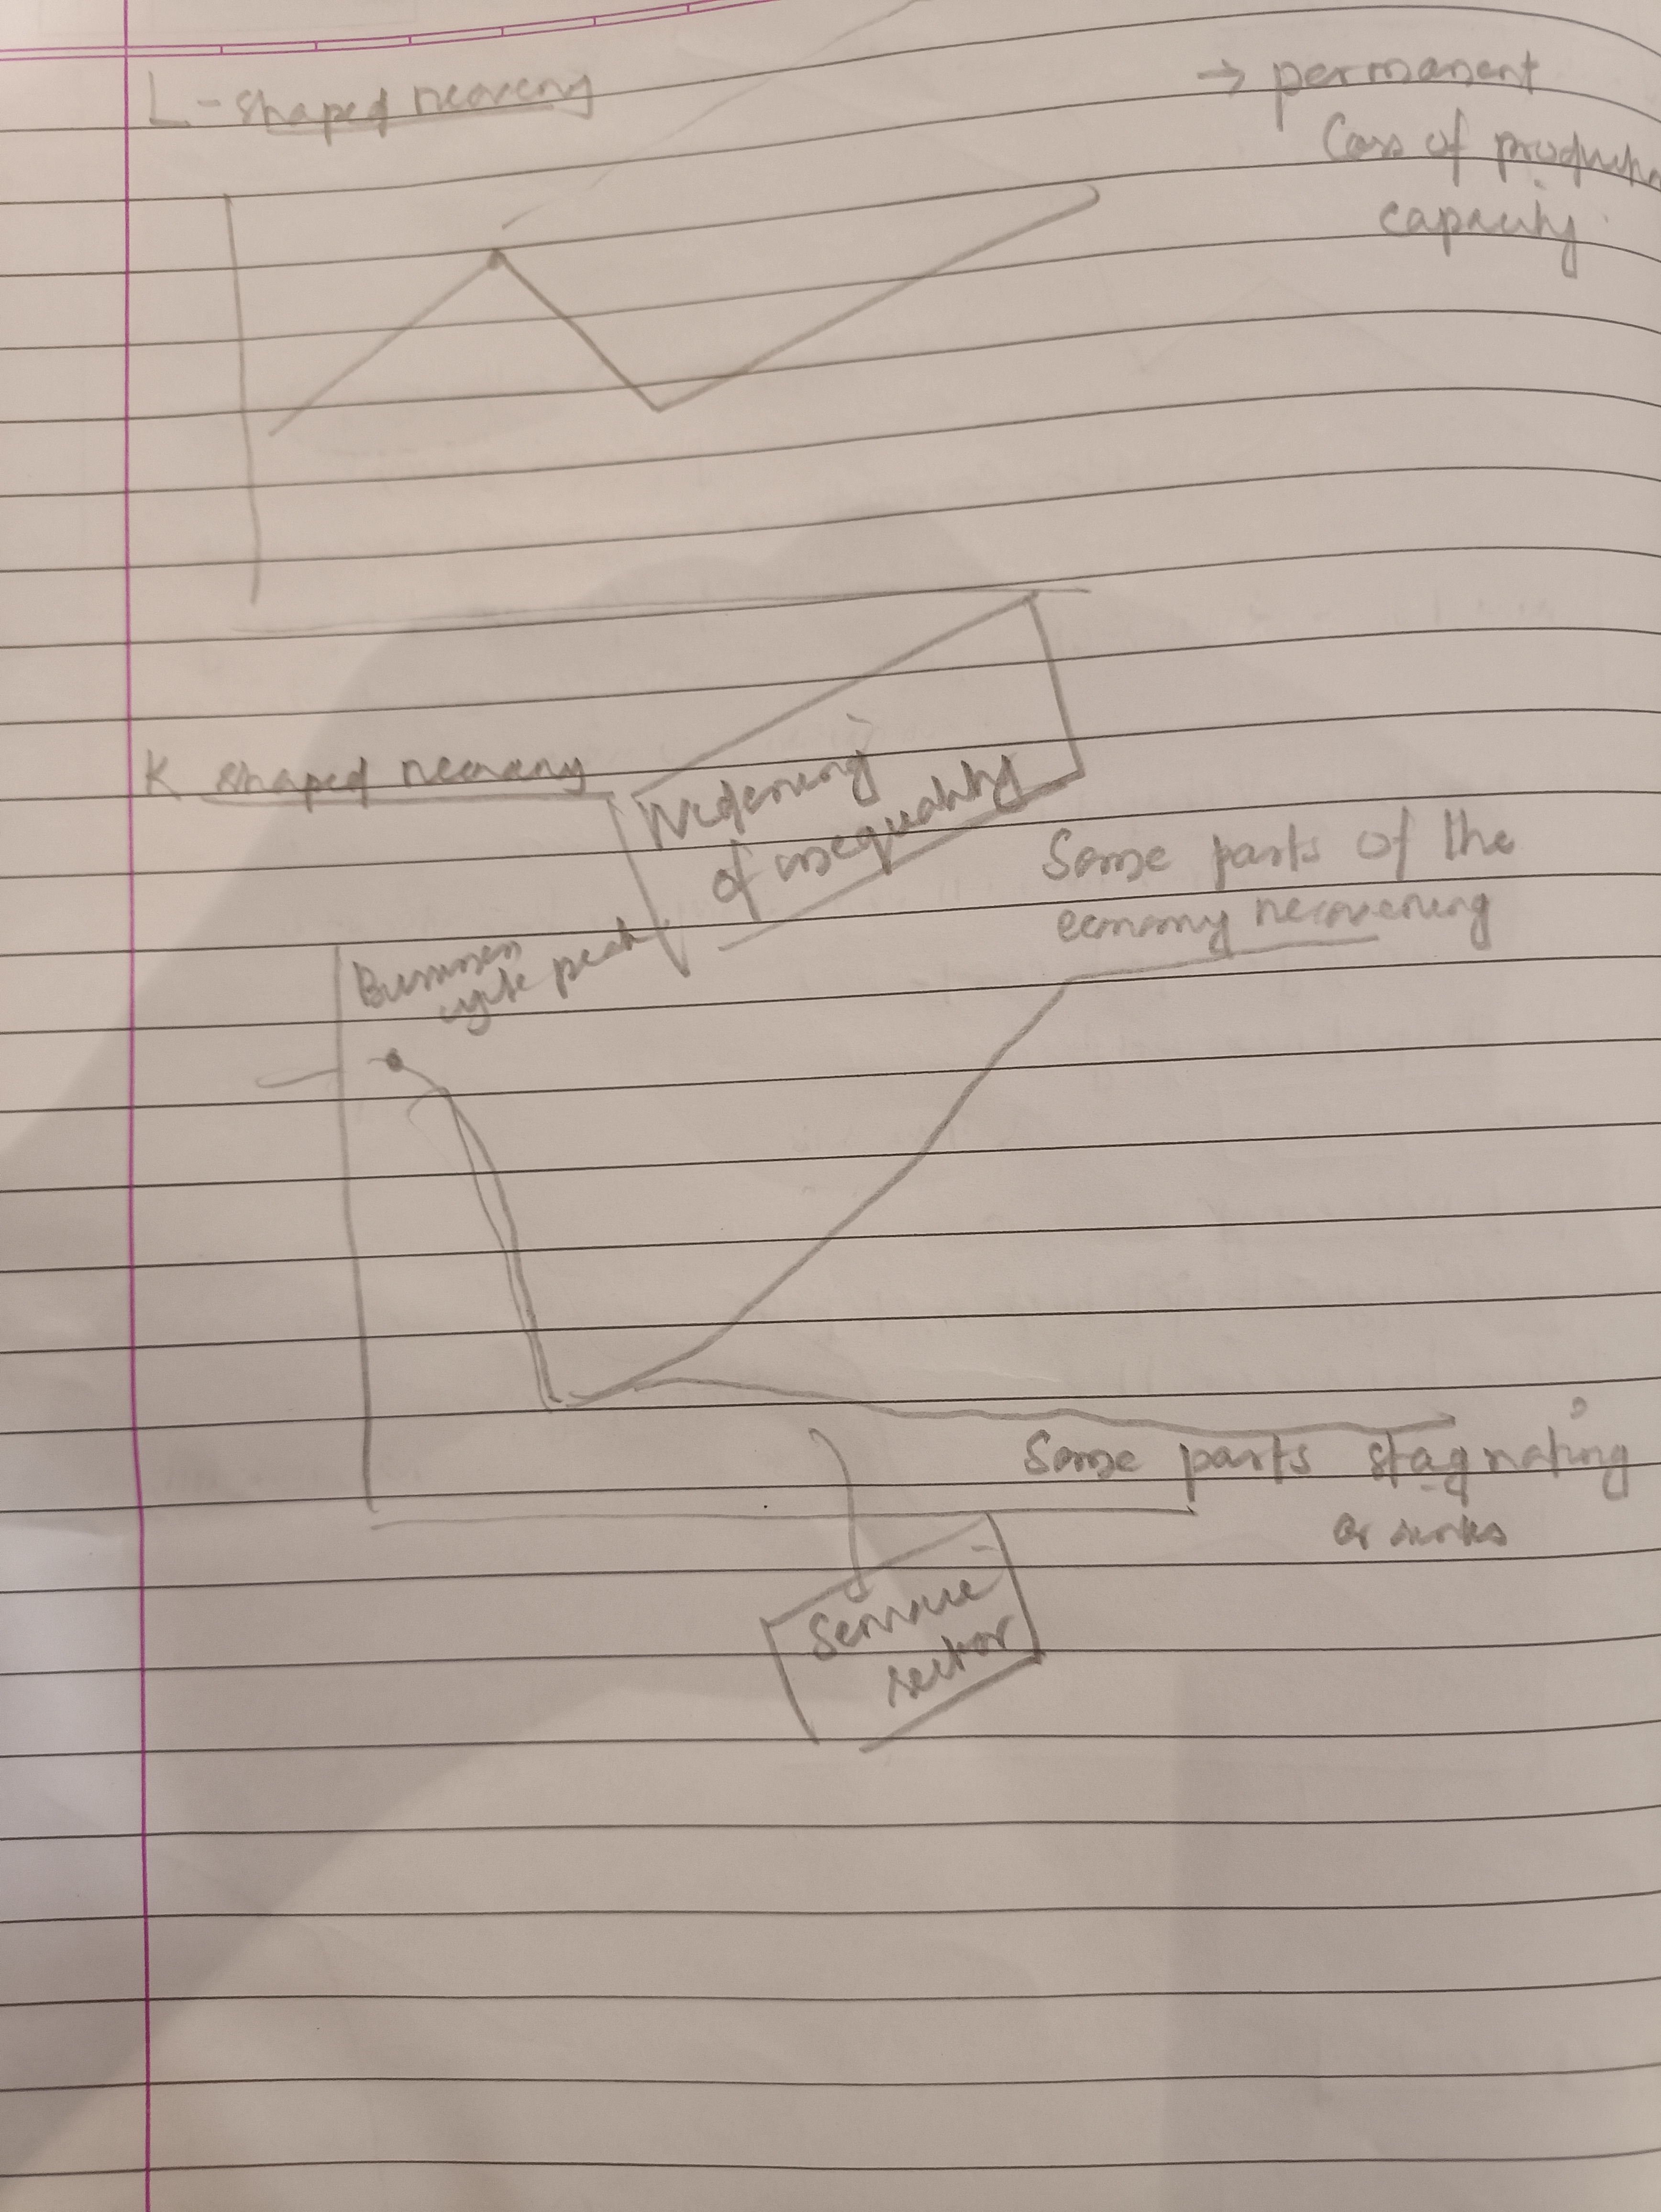 L-shaped recovery
→ permanent
loss of
capacity
K shaped recovery
Widening
of inequality
Some parts of the
economy recovering
Business
cycle peak
Some parts stagnating
or
Service
sector